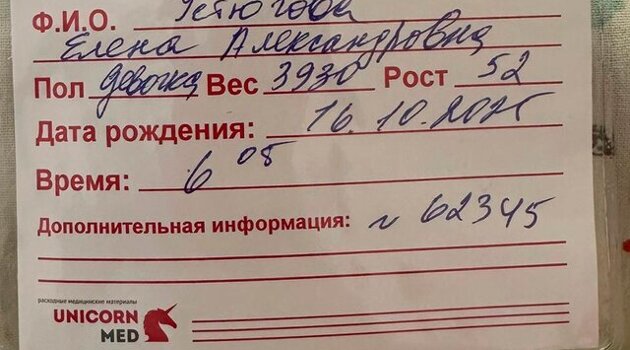 Ф.И.О. Устюгова
Елена Александровна
Пол девочка Вес 3930 Рост 52
Дата рождения: 16.10.2025
Время: 6 05
Дополнительная информация: N 62345
расходные медицинские материалы
UNICORN
MED